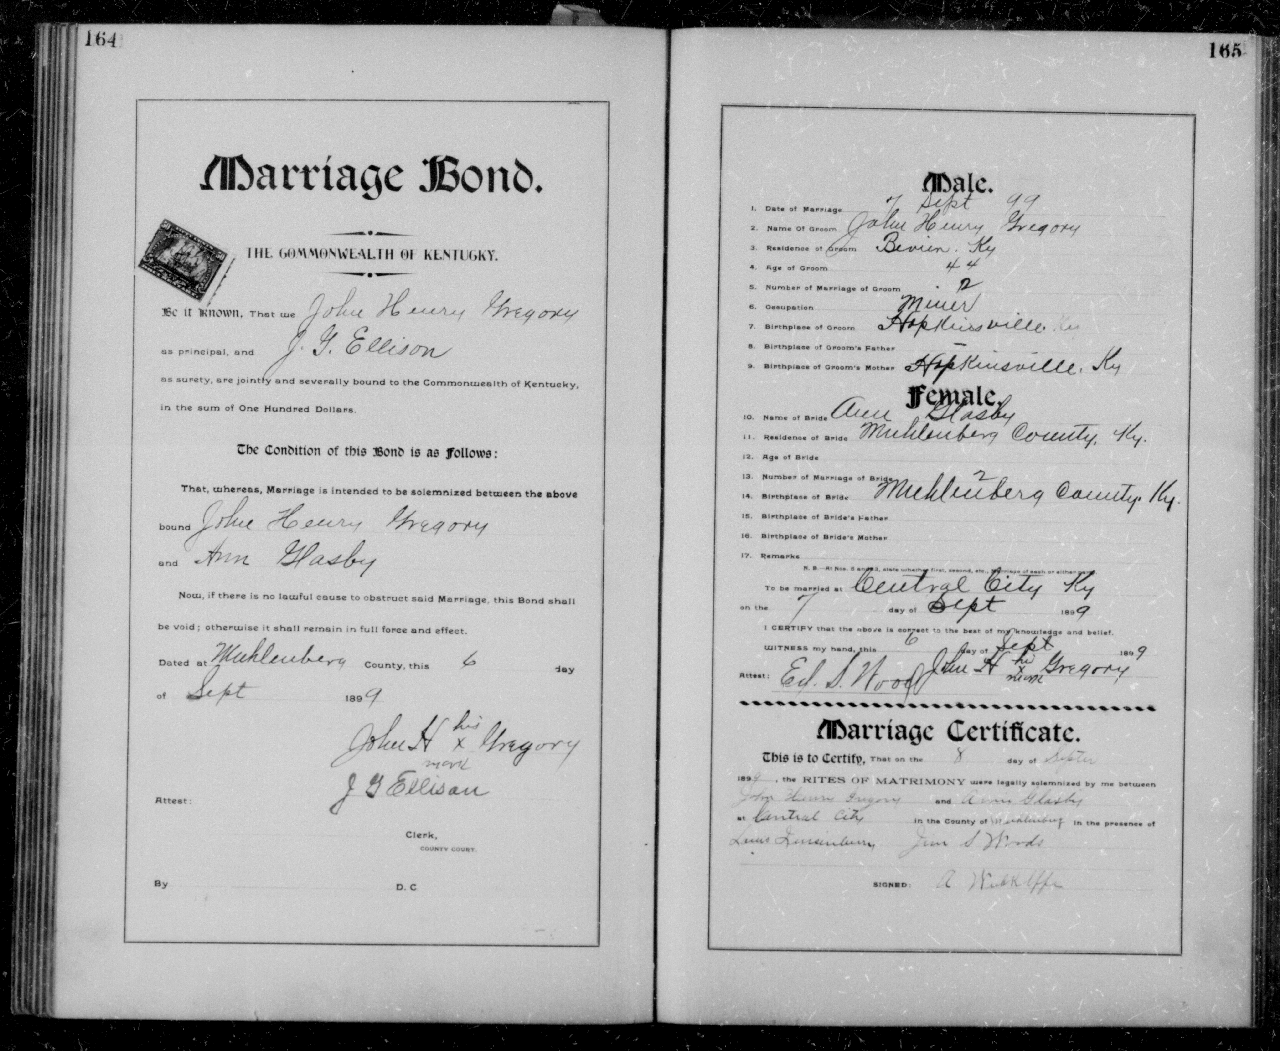 164
Marriage Bond.
THE COMMONWEALTH OF KENTUCKY.
Be it Known, That we John Henry Gregory
as principal, and J. G. Ellison
as surety, are jointly and severally bound to the Commonwealth of Kentucky,
in the sum of One Hundred Dollars.
The Condition of this Bond is as Follows:
That, whereas, Marriage is intended to be solemnized between the above
bound John Henry Gregory
and Ann Glasby
Now, if there is no lawful cause to obstruct said Marriage, this Bond shall
be void; otherwise it shall remain in full force and effect.
Dated at Muhlenberg County, this 6 day
of Sept 1899
his
John H x Gregory
mark
J G Ellison
Attest:
Clerk,
COUNTY COURT.
By D. C.
165
Male.
1. Date of Marriage 7 Sept 99
2. Name Of Groom John Henry Gregory
3. Residence of Groom Bevier. Ky
4. Age of Groom 44
5. Number of Marriage of Groom 2
6. Occupation Miner
7. Birthplace of Groom Hopkinsville. Ky
8. Birthplace of Groom's Father –
9. Birthplace of Groom's Mother Hopkinsville. Ky
Female.
10. Name of Bride Ann Glasby
11. Residence of Bride Muhlenberg County. Ky.
12. Age of Bride
13. Number of Marriage of Bride 2
14. Birthplace of Bride Muhlenberg County. Ky.
15. Birthplace of Bride's Father
16. Birthplace of Bride's Mother
17. Remarks
N. B.—At Nos. 5 and 13, state whether first, second, etc., marriage of each or either party.
To be married at Central City Ky
on the 7 day of Sept 1899
I CERTIFY that the above is correct to the best of my knowledge and belief.
WITNESS my hand, this 6 day of Sept 1899
his
Attest: Ed. S. Wood John H x Gregory
mark
Marriage Certificate.
This is to Certify, That on the 8 day of Septer
1899, the RITES OF MATRIMONY were legally solemnized by me between
John Henry Gregory and Ann Glasby
at Central City in the County of Muhlenberg in the presence of
Louis Jim S Woods
SIGNED: A